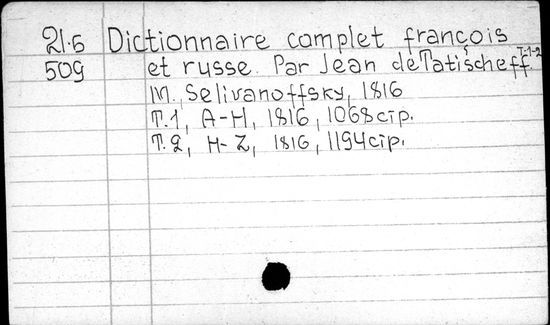 21.6 Dictionnaire complet françois
509 et russe. Par Jean de Tatischeff. T.1-2
M., Selivanoffsky, 1816
T.1, A-H, 1816, 1068 стр.
T.2, H-Z, 1816, 1194 стр.